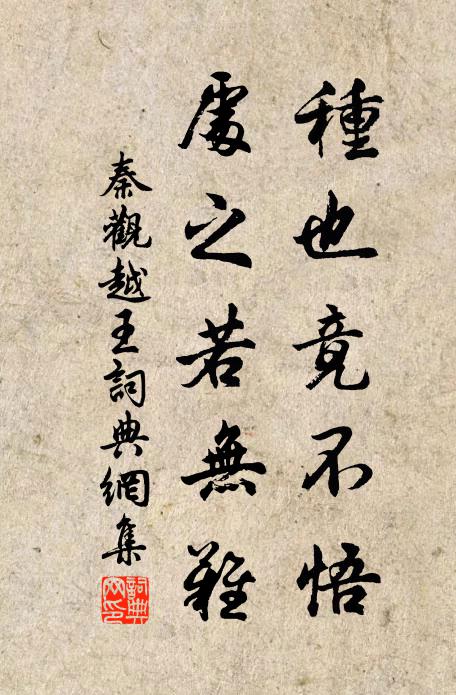 種也竟不悟
處之若無難
秦觀越王詞典網集
詞典網印